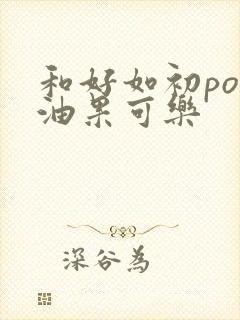 和好如初po
油果可樂
深谷為